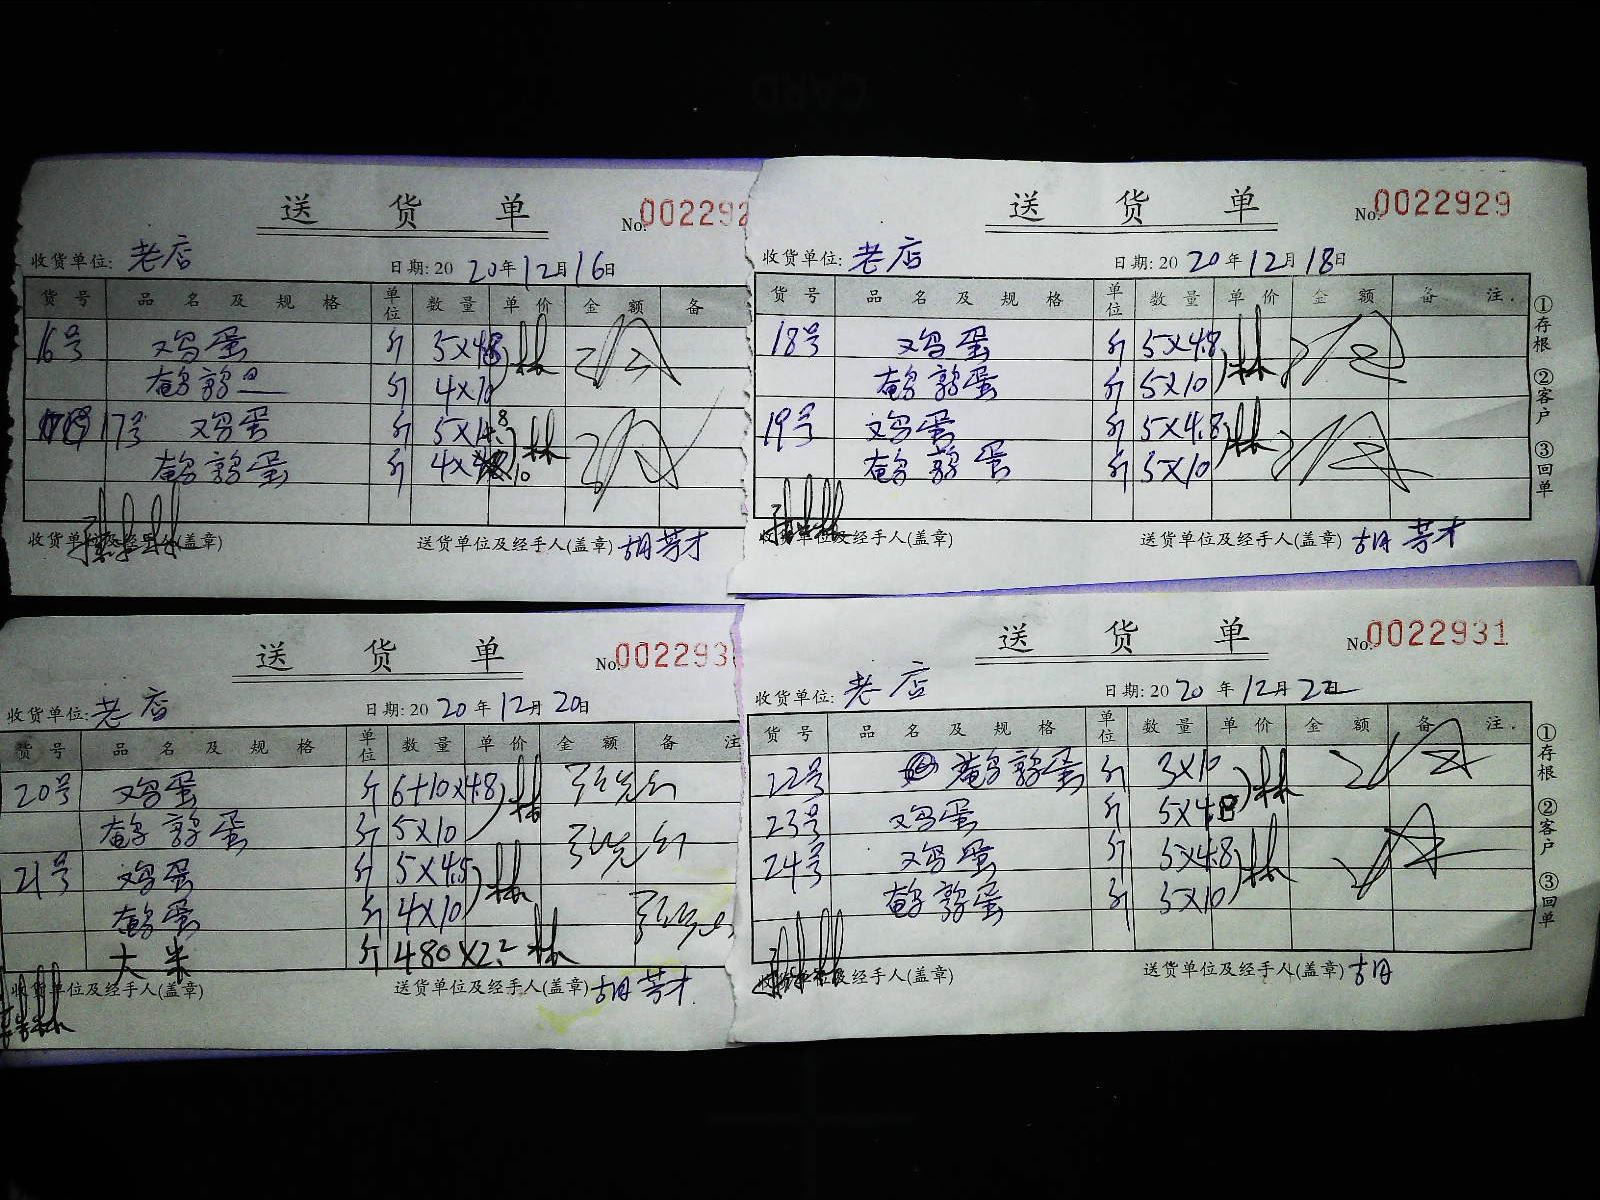 送 货 单
No.002292
收货单位: 老店
日期: 20 20年12月16日
货号 品名及规格 单位 数量 单价 金额 备
16号 鸡蛋 斤 5×4.8
鹌鹑蛋 斤 4×10
17号 鸡蛋 斤 5×4.8
鹌鹑蛋 斤 4×10
收货单位及经手人(盖章) 送货单位及经手人(盖章) 胡芳才
送 货 单
No.0022929
收货单位: 老店
日期: 20 20年12月18日
货号 品名及规格 单位 数量 单价 金额 备注.
18号 鸡蛋 斤 5×4.8
鹌鹑蛋 斤 5×10
19号 鸡蛋 斤 5×4.8
鹌鹑蛋 斤 5×10
收货单位及经手人(盖章) 送货单位及经手人(盖章) 胡芳才
①存根 ②客户 ③回单
送 货 单
No.002293
收货单位: 老店
日期: 20 20年12月20日
货号 品名及规格 单位 数量 单价 金额 备注
20号 鸡蛋 斤 6+10×4.8
鹌鹑蛋 斤 5×10
21号 鸡蛋 斤 5×4.8
鹌蛋 斤 4×10
大米 斤 480×2.2
收货单位及经手人(盖章) 送货单位及经手人(盖章) 胡芳才
送 货 单
No.0022931
收货单位: 老店
日期: 20 20年12月22日
货号 品名及规格 单位 数量 单价 金额 备注.
22号 鹌鹑蛋 斤 3×10
23号 鸡蛋 斤 5×4.8
24号 鸡蛋 斤 5×4.8
鹌鹑蛋 斤 5×10
收货单位及经手人(盖章) 送货单位及经手人(盖章) 胡
①存根 ②客户 ③回单